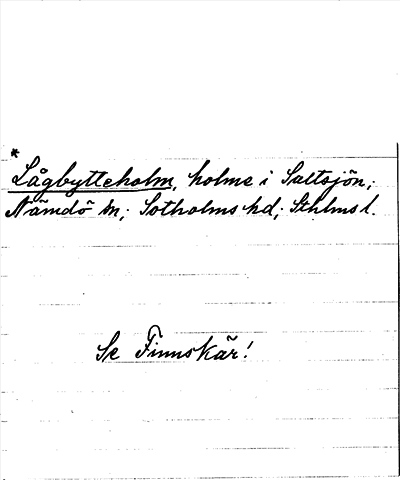 *
Lågbytteholm, holme i Saltsjön;
Nämdö sn; Sotholms hd; Sthlms l.
Se Finnskär!